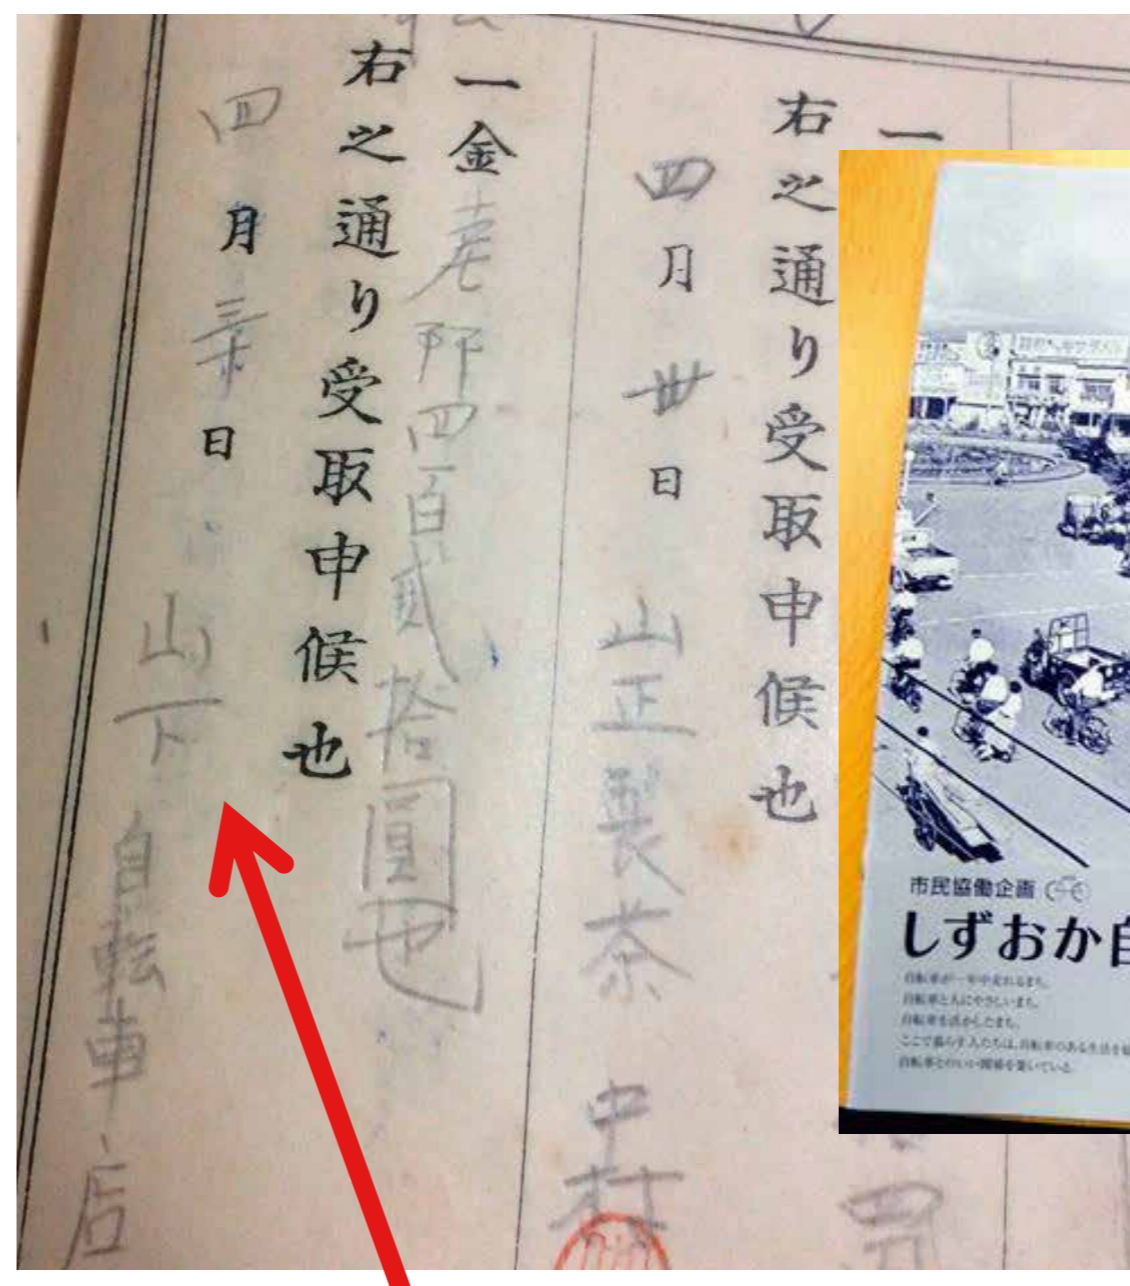 一
右之通り受取申候也
四月卅日 山正製茶 中村
一金壱阡四百貳拾圓也
右之通り受取申候也
四月日 山下自転車店
市民協働企画
しずおか自
自転車が一年中走れるまち。
自転車と人にやさしいまち。
自転車を活かしたまち。
ここで暮らす人たちは、自転車のある生活を
自転車とのいい関係を築いている。